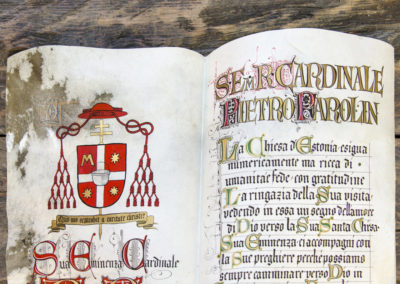 M
Sua Eminenza Cardinale
SEM.R. CARDINALE
PIETRO PAROLIN
La Chiesa d'Estonia esigua
numericamente ma ricca di
umanità e fede con gratitudine
La ringrazia della Sua visita
vedendo in essa un segno dell'amore
di Dio verso la Sua Santa Chiesa
Sua Eminenza ci accompagni con
la Sue preghiere perché possiamo
sempre camminare verso Dio in